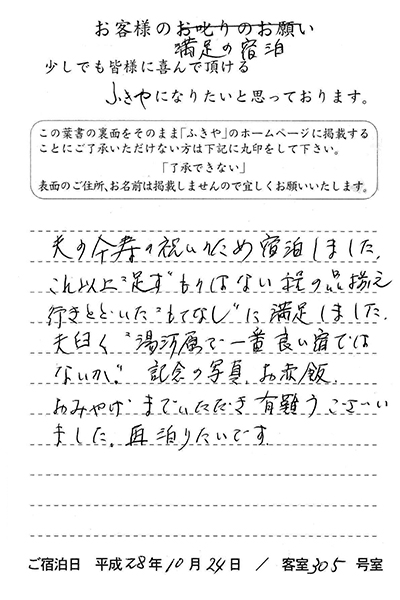 お客様のお叱りのお願い
満足の宿泊
少しでも皆様に喜んで頂ける
ふきやになりたいと思っております。
この葉書の裏面をそのまま「ふきや」のホームページに掲載する
ことにご了承いただけない方は下記に丸印をして下さい。
「了承できない」
表面のご住所、お名前は掲載しませんので宜しくお願いいたします。
夫の傘寿の祝いのため宿泊しました。
これ以上"足す"ものはない程の品揃え
行きとどいた"もてなし"に満足しました。
夫曰く"湯河原で一番良い宿では
ないか"。記念の写真、お赤飯、
おみやげまでいただき有難うございい
ました。再泊りたいです。
ご宿泊日 平成28年10月24日 / 客室305号室